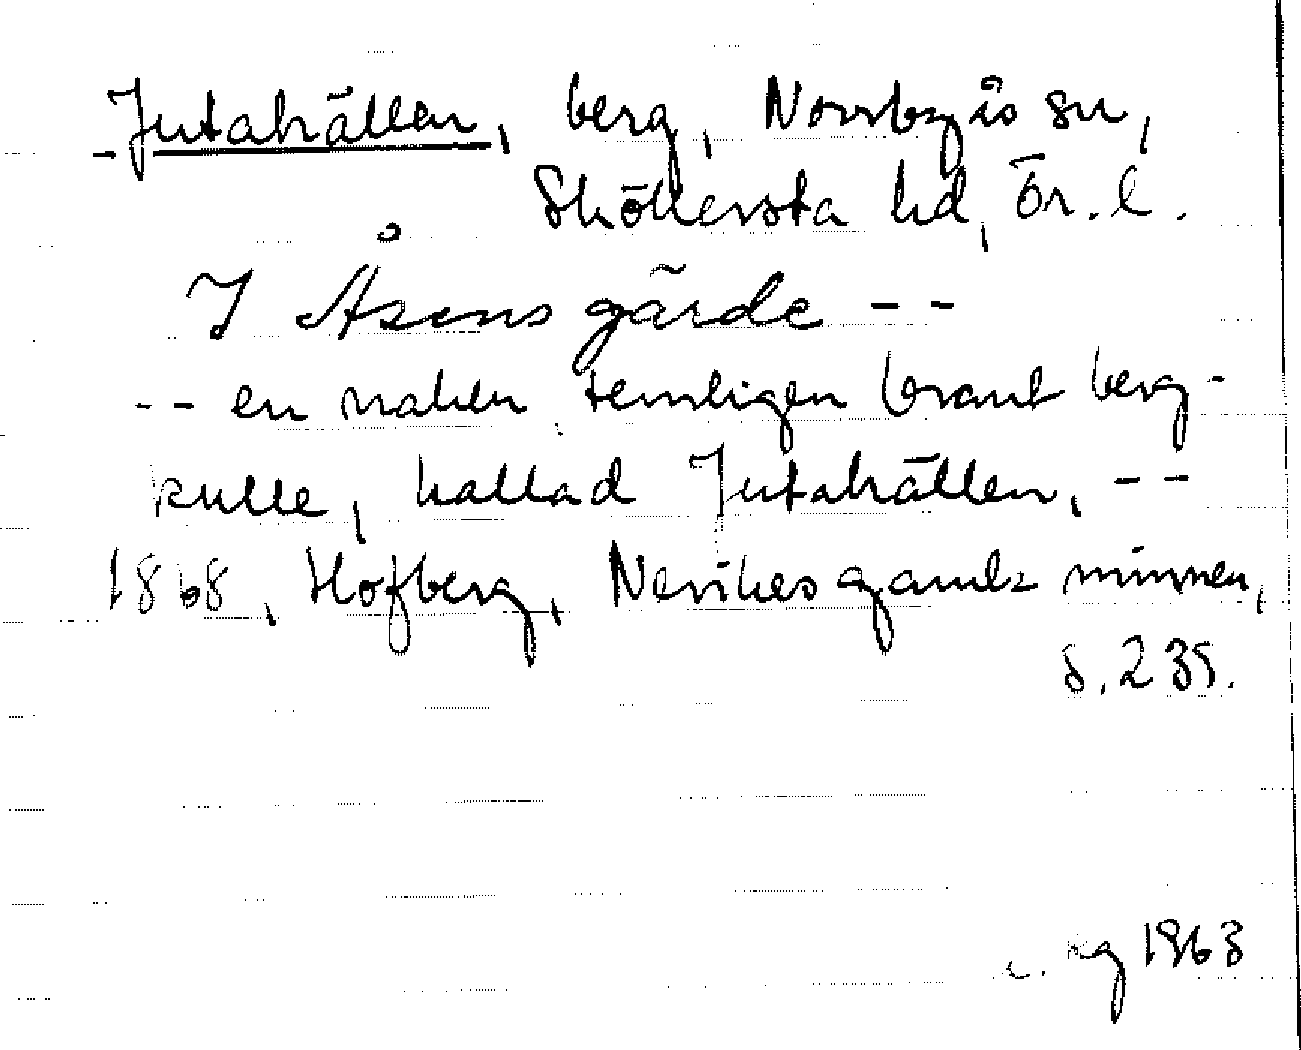 Jutahällen, berg, Norrbyås sn,
Sköllersta hd, Ör. l.
I Åsens gärde --
-- en naken temligen brant berg-
kulle, kallad Jutahällen, --
1868, Hofberg, Nerikes gamla minnen,
s. 235.
1963